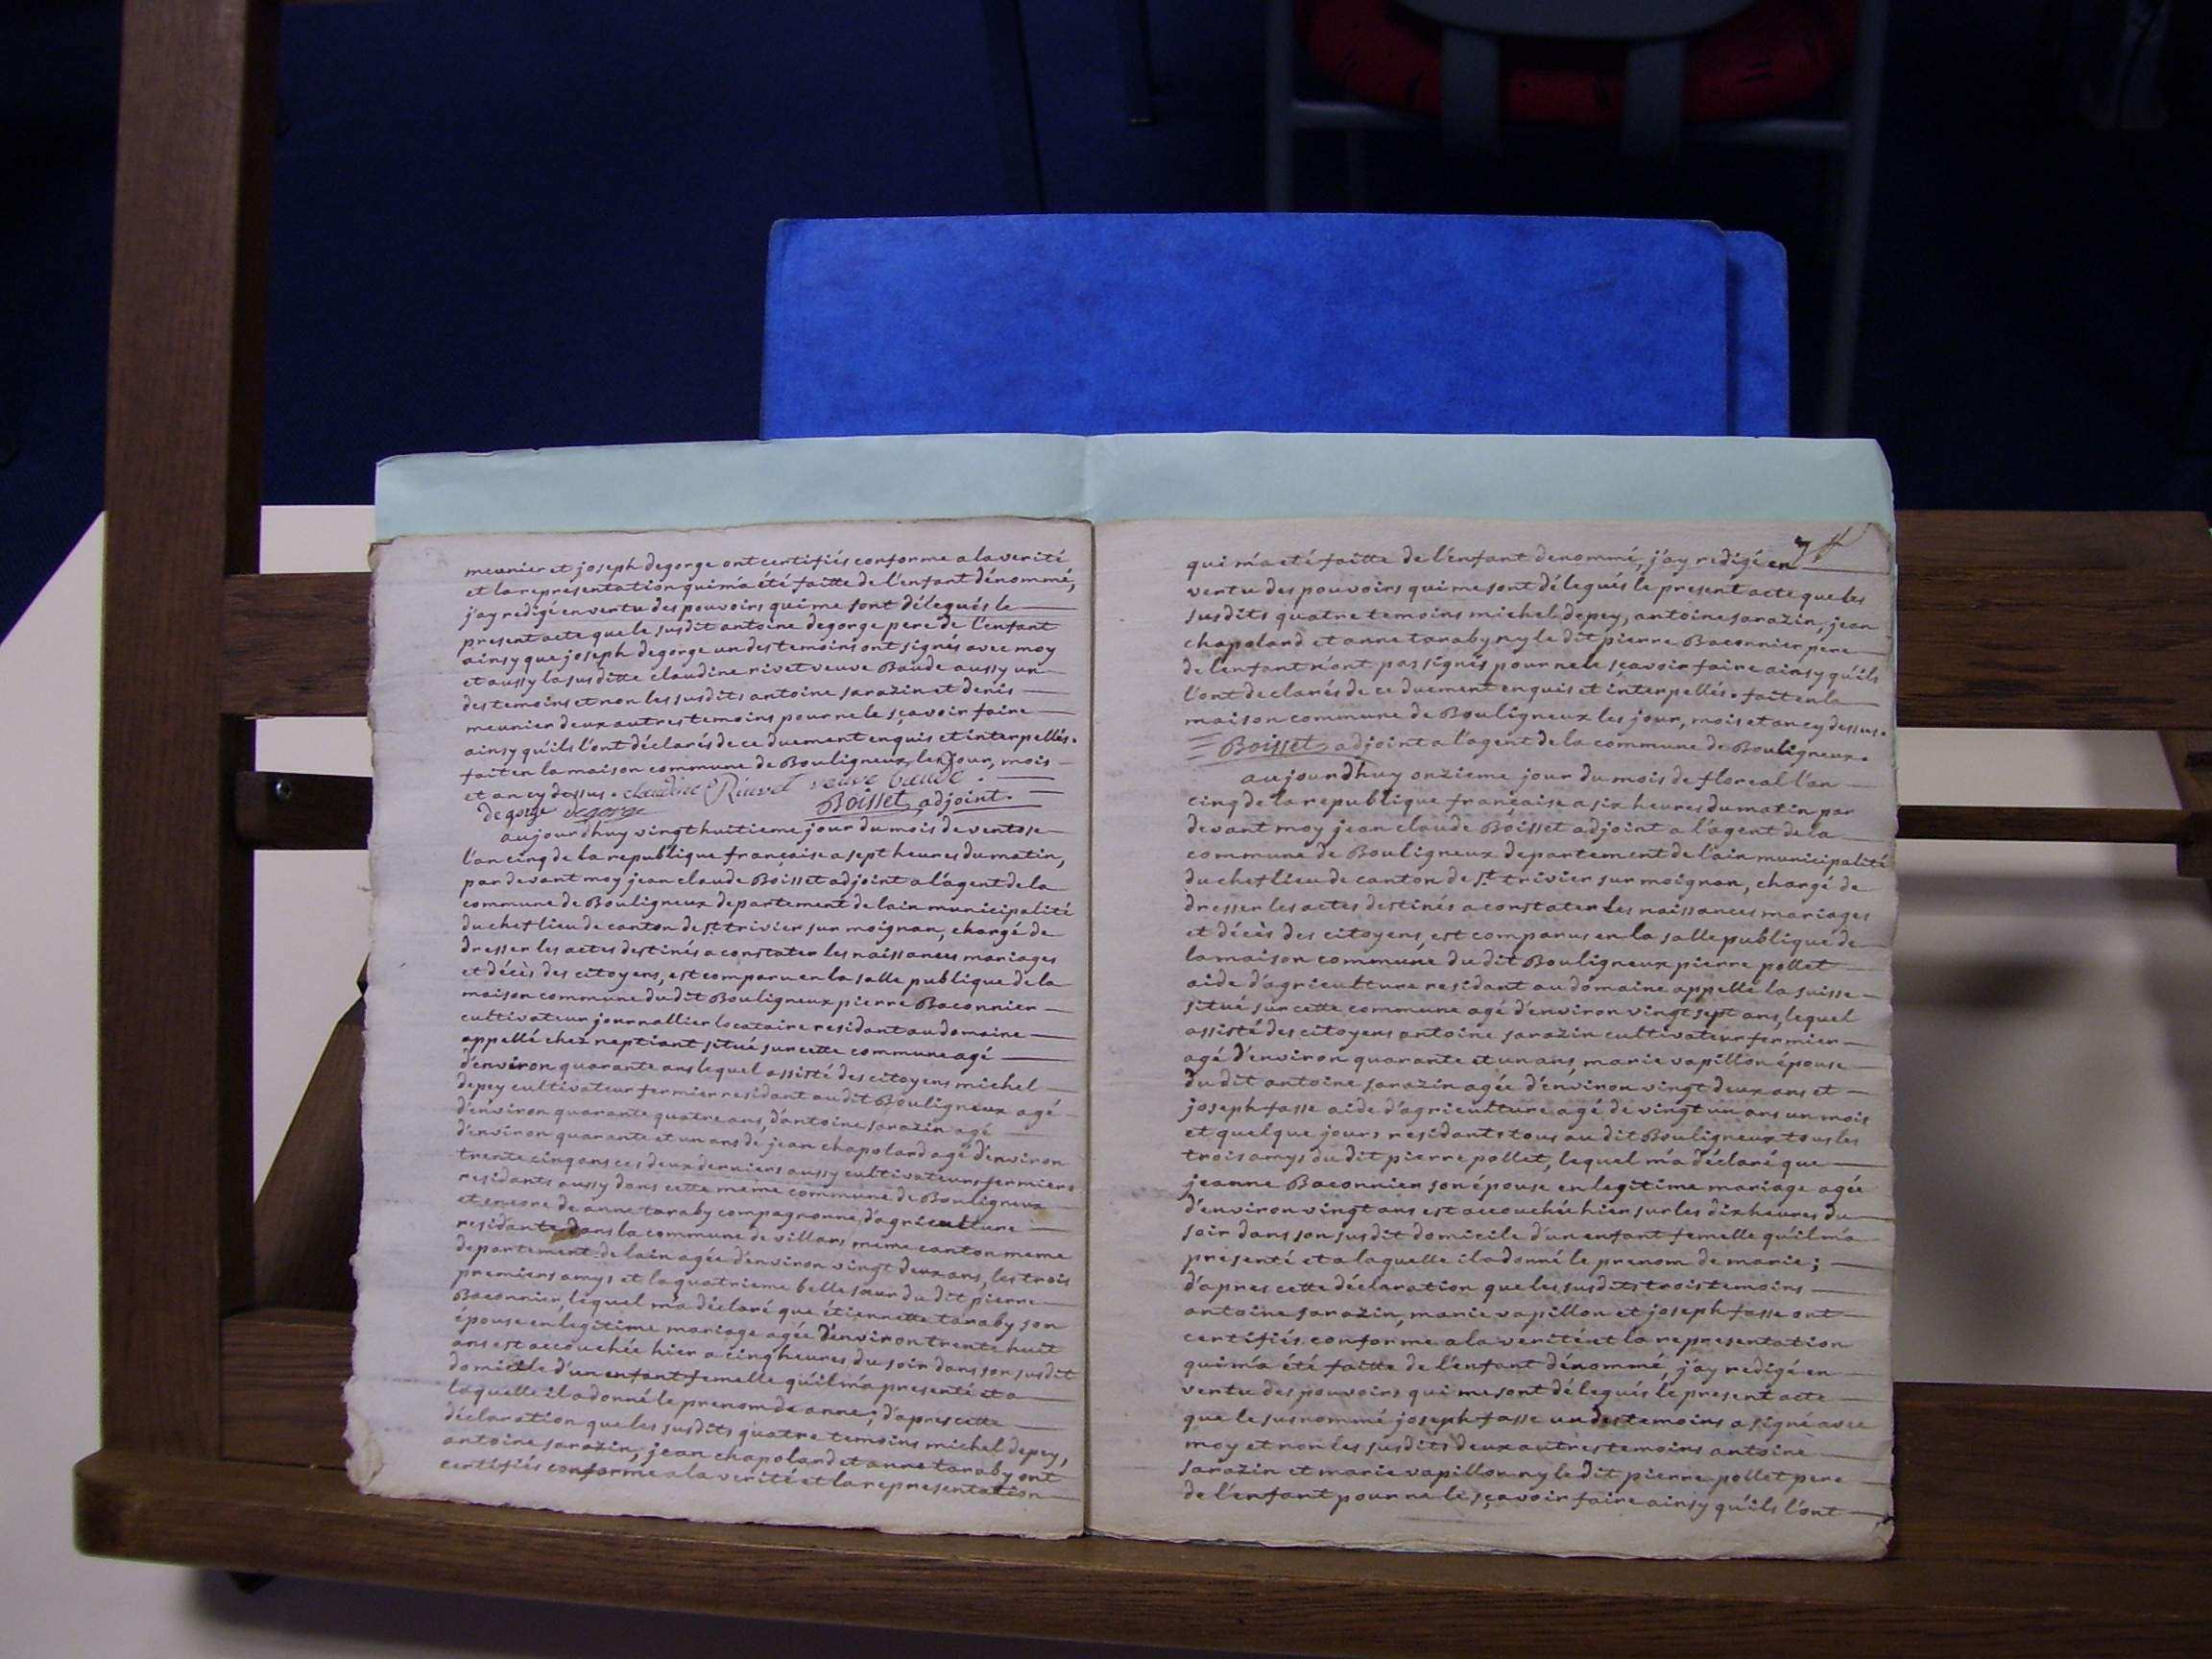 meunier et joseph degorge ont certifiés conforme a la verité
et la representation qui m'a été faitte de l'enfant dénommé,
j'ay redigé en vertu des pouvoirs qui me sont délegués le
present acte que le susdit antoine degorge pere de l'enfant
ainsy que joseph degorge un des temoins ont signés avec moy
et aussy la susditte claudine rivet veuve Baude aussy un
des temoins et non les susdits antoine sarazin et denis
meunier deux autres temoins pour ne le sçavoir faire
ainsy qu'ils l'ont déclarés de ce duement enquis et interpellés.
fait en la maison commune de Bouligneux les jour, mois
et an cy dessus. claudine Rivet veuve baude.
degorge degorge Boisset, adjoint.
aujourdhuy vingt huitieme jour du mois de ventose
l'an cinq de la republique française a sept heures du matin,
par devant moy jean claude Boisset adjoint a l'agent de la
commune de Bouligneux departement de lain municipalité
du chef lieu de canton de st trivier sur moignan, chargé de
dresser les actes destinés a constater les naissances mariages
et décès des citoyens, est comparu en la salle publique de la
maison commune du dit Bouligneux pierre Baconnier
cultivateur journallier locataire residant au domaine
appellé chez neptiant situé sur cette commune agé
d'environ quarante ans lequel assisté des citoyens michel
depey cultivateur fermier residant au dit Bouligneux agé
d'environ quarante quatre ans, d'antoine sarazin agé
d'environ quarante et un ans de jean chapoland agé d'environ
trente cinq ans ces deux derniers aussy cultivateurs fermiers
residants aussy dans cette meme commune de Bouligneux
et encore de anne taraby compagnonne d'agriculture
residante dans la commune de villars meme canton meme
departement de lain agée d'environ vingt deux ans, les trois
premiers amys et la quatrieme belle sœur du dit pierre
Baconnier, lequel m'a déclaré que étiennette taraby son
épouse en legitime mariage agée d'environ trente huit
ans est accouchée hier a cinq heures du soir dans son susdit
domicile d'un enfant femelle qu'il m'a presenté et a
laquelle il a donné le prenom de anne; d'apres cette
déclaration que les susdits quatre temoins michel depey,
antoine sarazin, jean chapoland et anne taraby ont
certifiés conforme a la verité et la representation
qui m'a eté faitte de l'enfant denommé, j'ay redigé en
vertu des pouvoirs qui me sont délegués le present acte que les
susdits quatre temoins michel depey, antoine sarazin, jean
chapoland et anne taraby ny le dit pierre Baconnier pere
de l'enfant n'ont pas signés pour ne le sçavoir faire ainsy qu'ils
l'ont declarés de ce duement enquis et interpellés. fait en la
maison commune de Bouligneux les jour, mois et an cy dessus.
Boisset, adjoint a l'agent de la commune de Bouligneux.
aujourdhuy onzieme jour du mois de floreal l'an
cinq de la republique française a six heures du matin par
devant moy jean claude Boisset adjoint a l'agent de la
commune de Bouligneux departement de l'ain municipalité
du chef lieu de canton de st trivier sur moignan, chargé de
dresser les actes destinés a constater les naissances mariages
et décès des citoyens, est comparus en la salle publique de
la maison commune du dit Bouligneux pierre pollet
aide d'agriculture residant au domaine appellé la suisse
situé sur cette commune agé d'environ vingt sept ans, lequel
assisté des citoyens antoine sarazin cultivateur fermier
agé d'environ quarante et un ans, marie vapillon épouse
du dit antoine sarazin agée d'environ vingt deux ans et
joseph fasse aide d'agriculture agé de vingt un ans un mois
et quelque jours residants tous au dit Bouligneux tous les
trois amys du dit pierre pollet, lequel m'a déclaré que
jeanne Baconnier son épouse en legitime mariage agée
d'environ vingt ans est accouchée hier sur les dix heures du
soir dans son susdit domicile d'un enfant femelle qu'il m'a
présenté et a laquelle il a donné le prenom de marie;
d'apres cette déclaration que les susdits trois temoins
antoine sarazin, marie vapillon et joseph fasse ont
certifiés conforme a la verité et la representation
qui m'a été faitte de l'enfant dénommé, j'ay redigé en
vertu des pouvoirs qui me sont délegués le present acte
que le susnommé joseph fasse un des temoins a signé avec
moy et non les susdits deux autres temoins antoine
sarazin et marie vapillon ny le dit pierre pollet pere
de l'enfant pour ne le sçavoir faire ainsy qu'ils l'ont